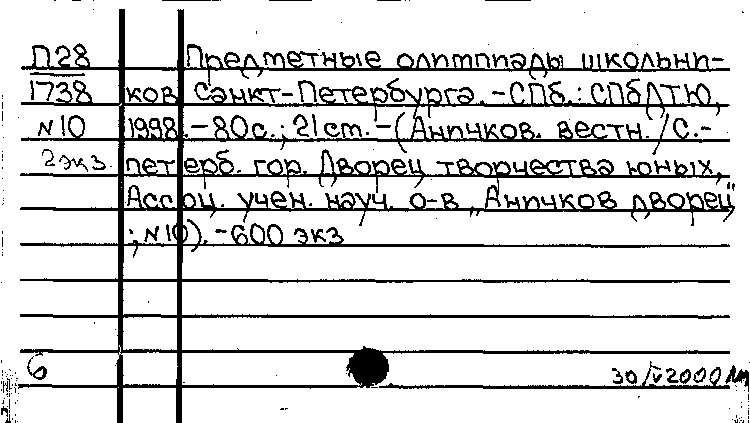 П28 Предметные олимпиады школьни-
1738 ков Санкт-Петербурга.-СПб.:СПбДТЮ,
N10 1998.-80с.;21cm.-(Аничков. вестн./С.-
2экз. петерб. гор. Дворец творчества юных,
Ассоц. учен. науч. о-в „Аничков дворец"
;N10).-600 экз
6 30/V2000